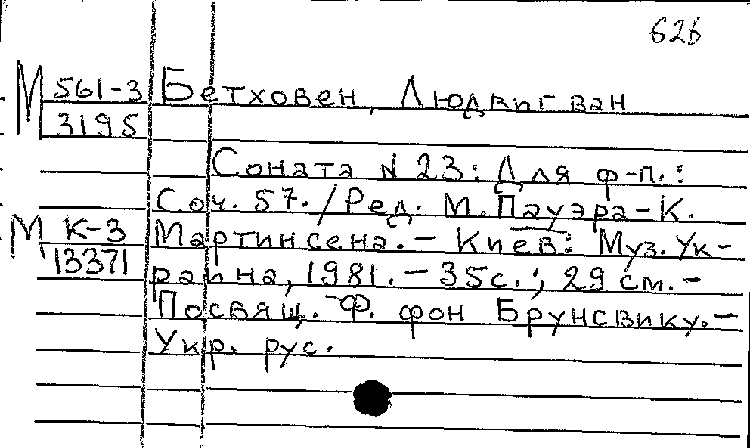 626
М 561-3 Бетховен, Людвиг ван
3195
Соната N 23: Для ф-п.:
Соч. 57. / Ред. М. Пауэра-К.
М К-3 Мартинсена. – Киев: Муз. Ук-
13371 раина, 1981. – 35с.; 29 см. –
Посвящ. Ф. фон Брунсвику. –
Укр. рус.